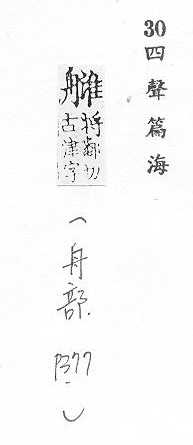 30四聲篇海
将鄰切
古津字
(舟部. P377)